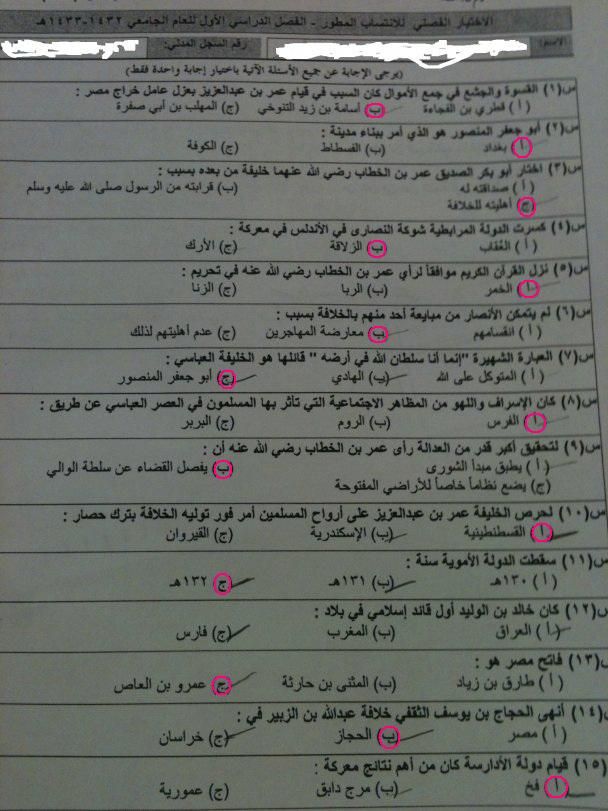 الاختبار الفصلي للانتساب المطور - الفصل الدراسي الأول للعام الجامعي ١٤٣٢-١٤٣٣هـ
الاسم: رقم السجل المدني:
(يرجى الإجابة عن جميع الأسئلة الآتية باختيار إجابة واحدة فقط)
س(١) القسوة والجشع في جمع الأموال كان السبب في قيام عمر بن عبدالعزيز بعزل عامل خراج مصر :
(أ) قطري بن الفجاءة (ب) أسامة بن زيد التنوخي (ج) المهلب بن أبي صفرة
س(٢) أبو جعفر المنصور هو الذي أمر ببناء مدينة :
(أ) بغداد (ب) الفسطاط (ج) الكوفة
س(٣) اختار أبو بكر الصديق عمر بن الخطاب رضي الله عنهما خليفة من بعده بسبب :
(أ) صداقته له (ب) قرابته من الرسول صلى الله عليه وسلم
(ج) أهليته للخلافة
س(٤) كسرت الدولة المرابطية شوكة النصارى في الأندلس في معركة :
(أ) العُقاب (ب) الزلاقة (ج) الأرك
س(٥) نزل القرآن الكريم موافقاً لرأي عمر بن الخطاب رضي الله عنه في تحريم :
(أ) الخمر (ب) الربا (ج) الزنا
س(٦) لم يتمكن الأنصار من مبايعة أحد منهم بالخلافة بسبب :
(أ) انقسامهم (ب) معارضة المهاجرين (ج) عدم أهليتهم لذلك
س(٧) العبارة الشهيرة "إنما أنا سلطان الله في أرضه " قائلها هو الخليفة العباسي :
(أ) المتوكل على الله (ب) الهادي (ج) أبو جعفر المنصور
س(٨) كان الإسراف واللهو من المظاهر الاجتماعية التي تأثر بها المسلمون في العصر العباسي عن طريق :
(أ) الفرس (ب) الروم (ج) البربر
س(٩) لتحقيق أكبر قدر من العدالة رأى عمر بن الخطاب رضي الله عنه أن :
(أ) يطبق مبدأ الشورى (ب) يفصل القضاء عن سلطة الوالي
(ج) يضع نظاماً خاصاً للأراضي المفتوحة
س(١٠) لحرص الخليفة عمر بن عبدالعزيز على أرواح المسلمين أمر فور توليه الخلافة بترك حصار :
(أ) القسطنطينية (ب) الإسكندرية (ج) القيروان
س(١١) سقطت الدولة الأموية سنة :
(أ) ١٣٠هـ (ب) ١٣١هـ (ج) ١٣٢هـ
س(١٢) كان خالد بن الوليد أول قائد إسلامي في بلاد :
(أ) العراق (ب) المغرب (ج) فارس
س(١٣) فاتح مصر هو :
(أ) طارق بن زياد (ب) المثنى بن حارثة (ج) عمرو بن العاص
س(١٤) أنهى الحجاج بن يوسف الثقفي خلافة عبدالله بن الزبير في :
(أ) مصر (ب) الحجاز (ج) خراسان
س(١٥) قيام دولة الأدارسة كان من أهم نتائج معركة :
(أ) فخ (ب) مرج دابق (ج) عمورية